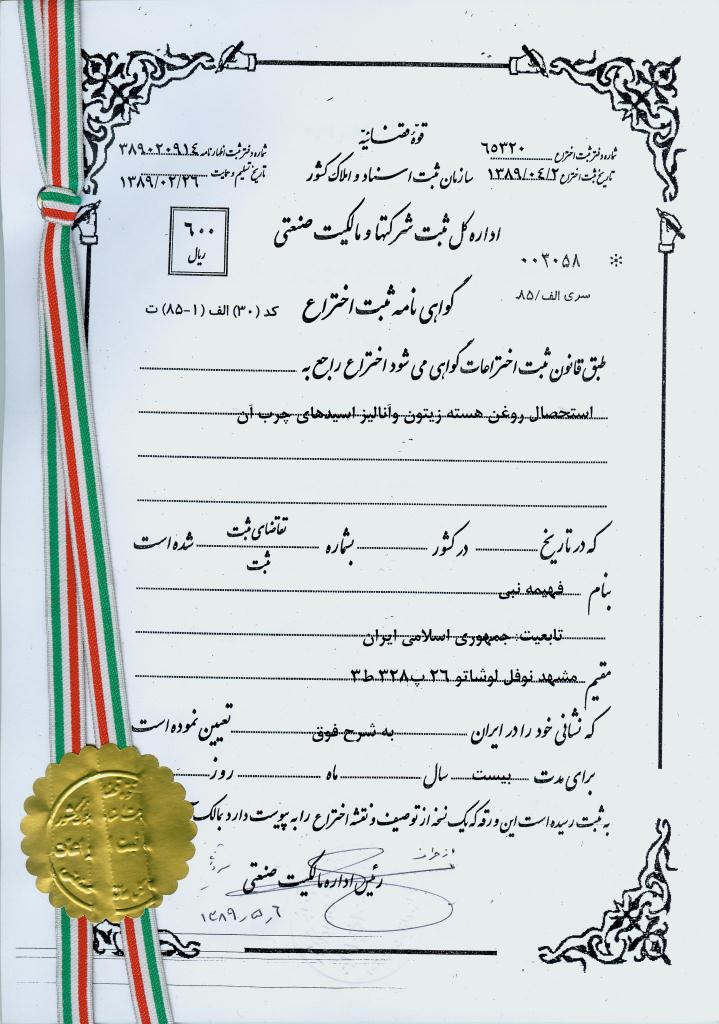 قوّهٔ قضائیّه
شماره دفتر ثبت اختراع ۶۵۳۲۰
شماره دفتر ثبت اظهارنامه ۳۸۹۰۲۰۹۱۴
تاریخ ثبت اختراع ۱۳۸۹/۰۴/۲
سازمان ثبت اسناد و املاک کشور
تاریخ تسلیم و حمایت ۱۳۸۹/۰۲/۲۶
اداره کل ثبت شرکتها و مالکیت صنعتی
۶۰۰
ریال
۰۰۳۰۵۸
سری الف/۸۵
گواهی نامه ثبت اختراع
کد (۳۰) الف (۱-۸۵) ت
طبق قانون ثبت اختراعات گواهی می شود اختراع راجع به
استحصال روغن هسته زیتون وآنالیز اسیدهای چرب آن
که در تاریخ در کشور بشماره تقاضای ثبت شده است
ثبت
بنام فهیمه نبی
تابعیت: جمهوری اسلامی ایران
مقیم مشهد نوفل لوشاتو ۲۶ پ۳۲۸ ط۳
که نشانی خود را در ایران به شرح فوق تعیین نموده است
برای مدت بیست سال ماه روز
به ثبت رسیده است این ورقه که یک نسخه از توصیف و نقشه اختراع را به پیوست دارد بمالک
رئیس اداره مالکیت صنعتی
۱۳۸۹٫۵٫۶